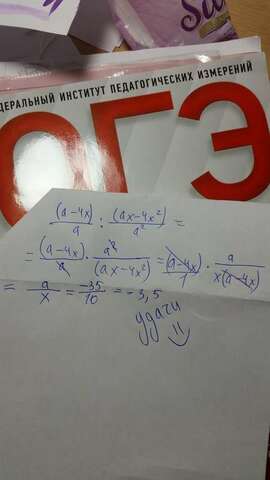 ДЕРАЛЬНЫЙ ИНСТИТУТ ПЕДАГОГИЧЕСКИХ ИЗМЕРЕНИЙ
ОГЭ
(a-4x)/a : (ax-4x²)/a² =
= (a-4x)/a · a²/(ax-4x²) = (a-4x)/1 · a/x(a-4x)
= a/x = -35/10 = -3,5
удачи